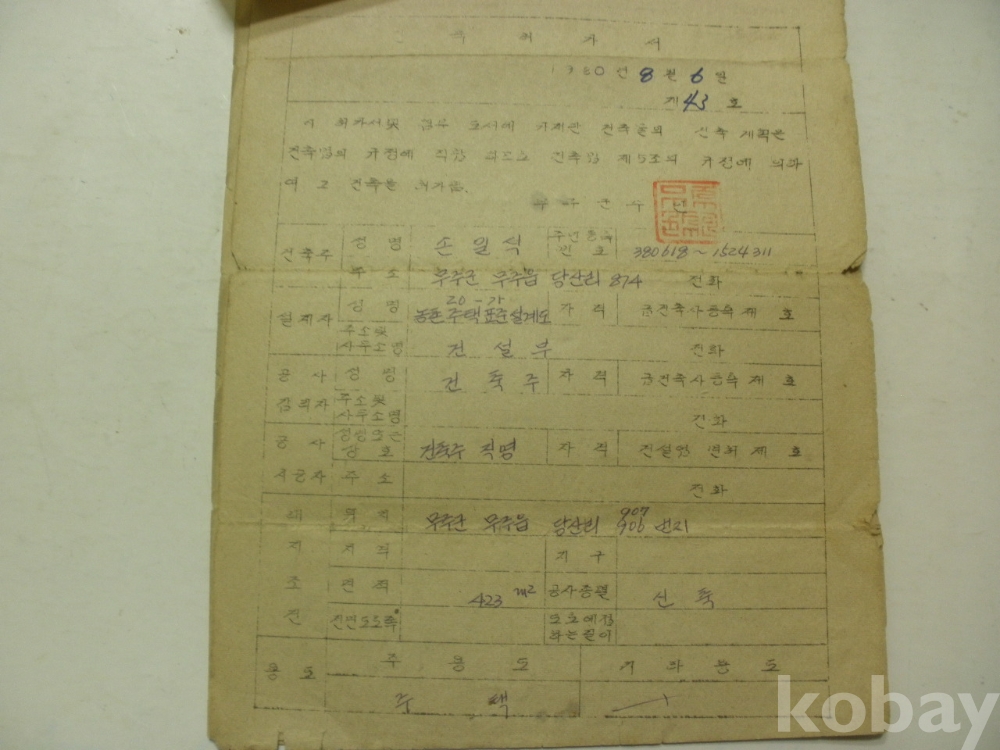 건축허가서
1980년 8월 6일
제 43 호
이 허가서및 첨부 도서에 기재한 건축물의 건축 계획은
건축법의 규정에 적합 하므로 건축법 제5조의 규정에 의하
여 그 건축을 허가함.
무주군수
건축주 성명 손일식 주민등록번호 380618~1524311
주소 무주군 무주읍 당산리 874 전화
설계자 성명 20-가 농촌주택표준설계도 자격 급건축사등록제 호
주소및 사무소명 건설부 전화
공사감리자 성명 건축주 자격 급건축사등록제 호
주소및 사무소명 전화
공사시공자 성명또는상호 건축주 직영 자격 건설업 면허제 호
주소 전화
대지조건 위치 무주군 무주읍 당산리 907 906 번지
지역 지구
면적 423 m2 공사종별 신축
전면도로폭 도로에접하는길이
용도 주용도 기타용도
주택
kobay